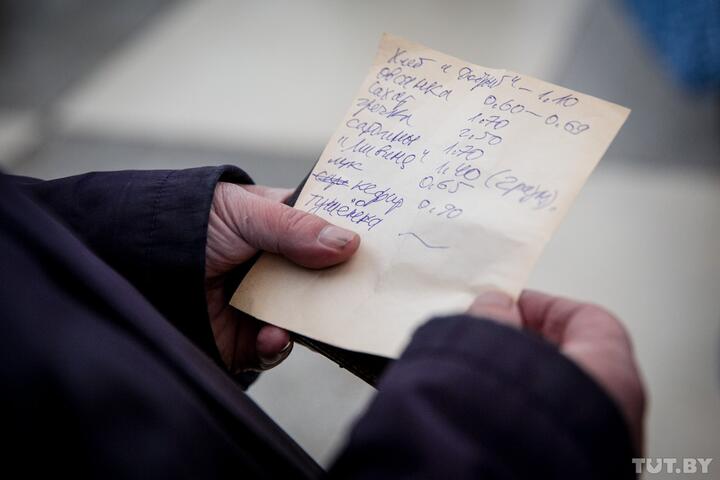 Хлеб "Водар" – 1.10
овсянка 0.60–0.69
сахар 1.70
гречка 2.50
сардины 1.70
" " 1.40 (грузин).
лук 0.65
кефир 0.90
тушёнка ~
TUT.BY